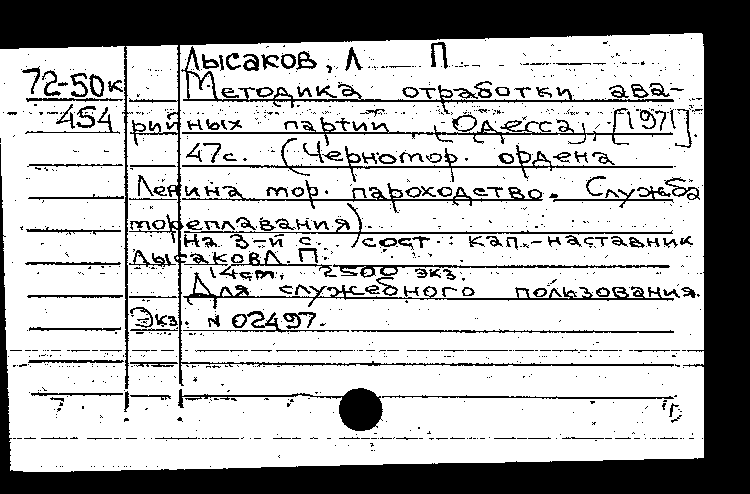 Лысаков, Л П
72-50к Методика отработки ава-
454 рийных партий, [Одесса], [1971].
47с. (Черномор. ордена
Ленина мор. пароходство. Служба
мореплавания)
На 3-й с. сост.: кап.-наставник
Лысаков Л. П.
14см. 2500 экз.
Для служебного пользования.
Экз. N 02497.